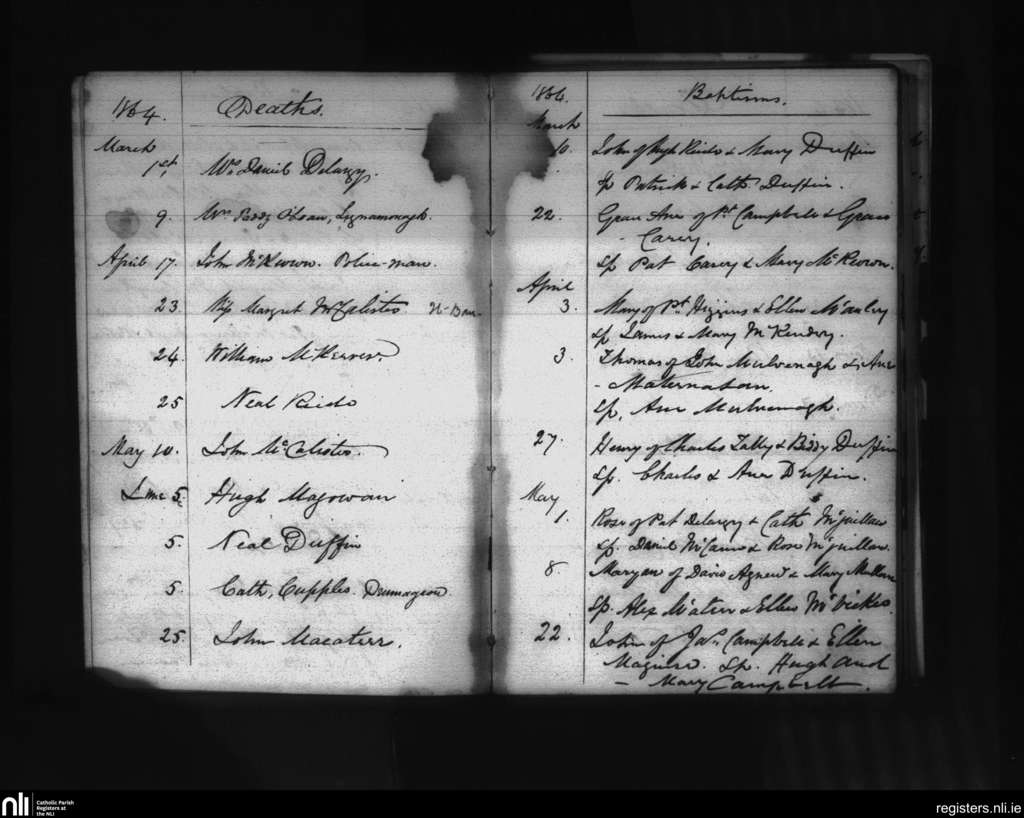 1864. Deaths.
March
1st, Mrs Daniel Delargy.
9. Mrs Paddy O'Loan, Lignamonagh.
April 17. John McKeown. Police-man.
23. Miss Margret McCalister
24. William McKeever.
25 Neal Reido
May 10. John McCalister.
June 5. Hugh Magowan
5. Neal Duffin
5. Cath, Cupples. Drumagrove
25. John Macateer.
1864. Baptisms.
March
10. John of Hugh Reido & Mary Duffin
Sp Patrick & Cath. Duffin.
22. Grace Ann of Pt Campbell & Grace
- Carey.
Sp Pat Carey & Mary McKeown.
April
3. Mary of Pt Higgins & Ellen McAuley
Sp James & Mary McKendry.
3. Thomas of John Mulvenagh & Ann
- Maternahan.
Sp, Ann Mulvenagh.
27. Henry of Charles Lally & Biddy Duffin
Sp. Charles & Ann Duffin.
May
1. Rose of Pat Delargy & Cath McQuillan
Sp. Daniel McCann & Rose McQuillan.
8. Maryan of David Agnew & Mary Mullan
Sp. Alex McAteer & Ellen McVicker.
22. John of Jas. Campbell & Ellen
Maguire. Sp. Hugh and
- Mary Campbell.
nli
Catholic Parish
Registers at
the NLI
registers.nli.ie